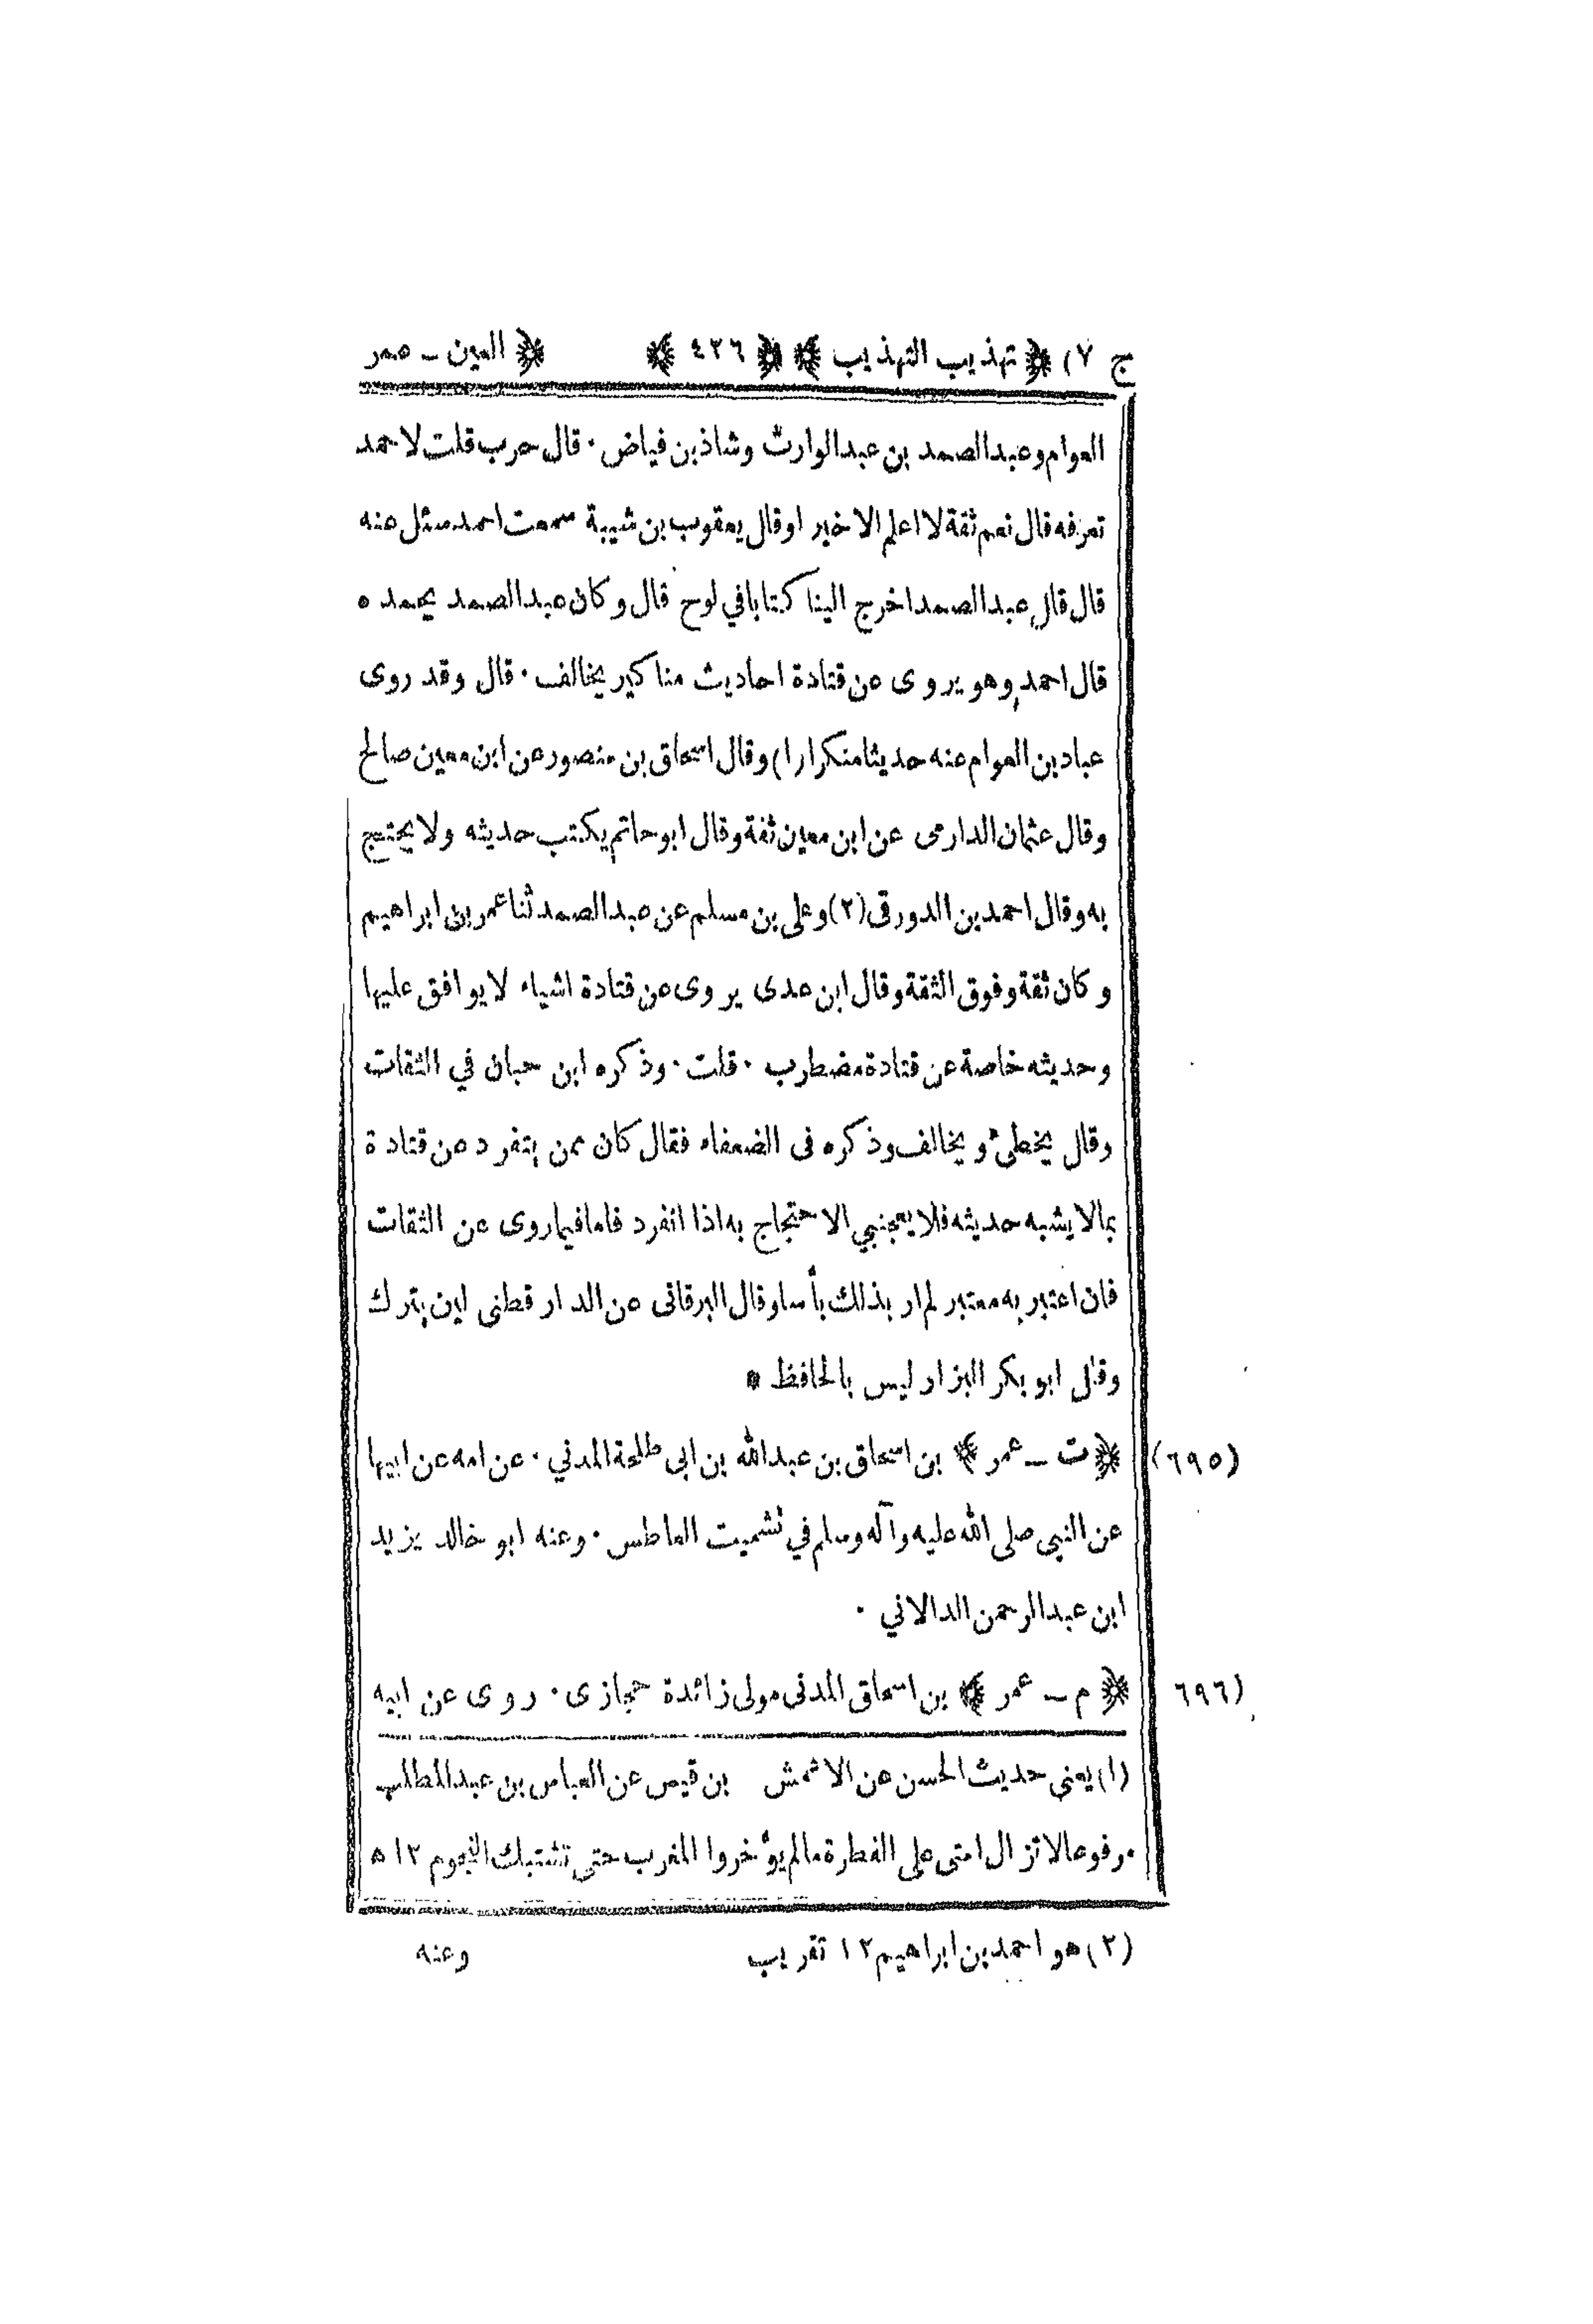 ج ٧) ﴿ تهذيب التهذيب ﴾ ﴿ ٤٢٦ ﴾ ﴿ العين ــ عمر
العوام وعبد الصمد بن عبد الوارث وشاذ بن فياض · قال حرب قلت لاحمد
تعرفه قال نعم ثقة لا اعلم الا خير ا وقال يعقوب بن شيبة سمعت احمد سئل عنه
قال قال عبد الصمد اخرج الينا كتابا في لوح قال و كان عبد الصمد يحمده
قال احمد وهو يروى عن قتادة احاديث منا كير يخالف · قال وقد روى
عباد بن العوام عنه حديثا منكرا (١) وقال اسحاق بن منصور عن ابن معين صالح
وقال عثمان الدارمى عن ابن معين ثقة وقال ابو حاتم يكتب حديثه ولا يحتج
به وقال احمد بن الدورقى (٢) وعلى بن مسلم عن عبد الصمد ثنا عمر بن ابراهيم
و كان ثقة وفوق الثقة وقال ابن عدى يروى عن قتادة اشياء لا يوافق عليها
وحديثه خاصة عن قتادة مضطرب · قلت · وذ كره ابن حبان في الثقات
وقال يخطئ و يخالف وذ كره فى الضعفاء فقال كان ممن يتفرد عن قتادة
بمالا يشبه حديثه فلا يعجبني الاحتجاج به اذا انفرد فاما فيما روى عن الثقات
فان اعتبر به معتبر لم ار بذلك بأسا وقال البرقانى عن الدار قطنى لين يترك
وقال ابو بكر البزار ليس بالحافظ *
(٦٩٥) ﴿ ت ــ عمر ﴾ بن اسحاق بن عبد الله بن ابى طلحة المدني · عن امه عن ابيها
عن النبى صلى الله عليه وآله وسلم في تشميت العاطس · وعنه ابو خالد يزيد
ابن عبد الرحمن الدالاني ·
٦٩٦) ﴿ م ــ عمر ﴾ بن اسحاق المدنى مولى زائدة حجازى · روى عن ابيه
(١) يعنى حديث الحسن عن الاحنف بن قيس عن العباس بن عبد المطلب
مرفوعا لا تزال امتى على الفطرة مالم يؤخروا المغرب حتى تشتبك النجوم ١٢ ه
(٢) هو احمد بن ابراهيم ١٢ تقريب
وعنه